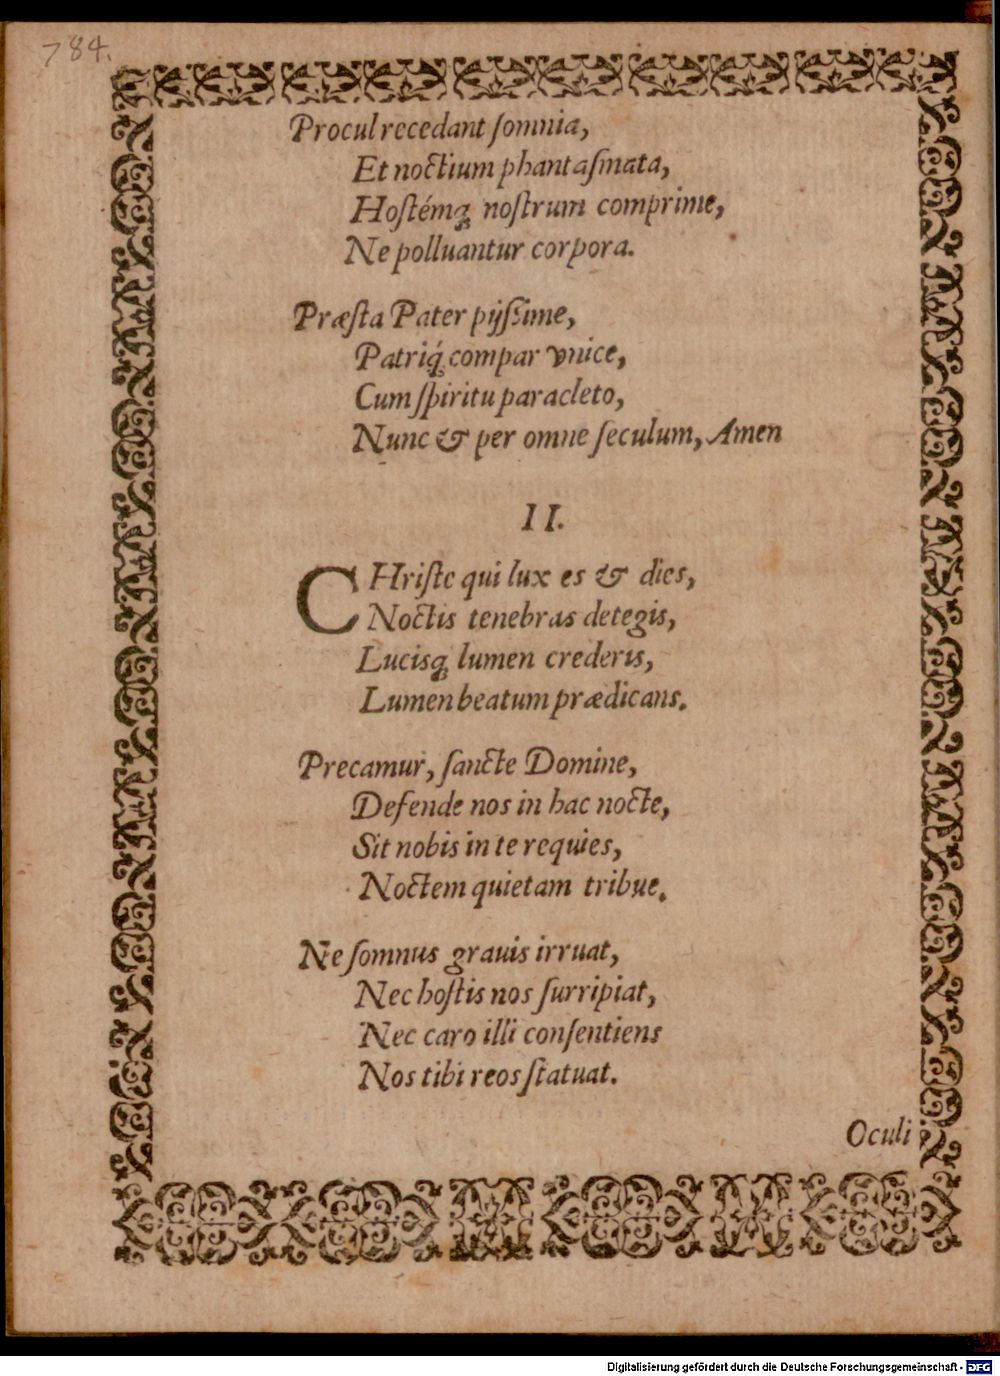 784.
Procul recedant ſomnia,
Et noctium phantaſmata,
Hoſtémq́ꝫ noſtrum comprime,
Ne polluantur corpora.
Præſta Pater pijſſime,
Patriq́ꝫ compar vnice,
Cum ſpiritu paracleto,
Nunc & per omne ſeculum, Amen
II.
CHriſte qui lux es & dies,
Noctis tenebras detegis,
Lucisqꝫ lumen crederis,
Lumen beatum prædicans.
Precamur, ſancte Domine,
Defende nos in hac nocte,
Sit nobis in te requies,
Noctem quietam tribue.
Ne ſomnus grauis irruat,
Nec hoſtis nos ſurripiat,
Nec caro illi conſentiens
Nos tibi reos ſtatuat.
Oculi
Digitalisierung gefördert durch die Deutsche Forschungsgemeinschaft - DFG